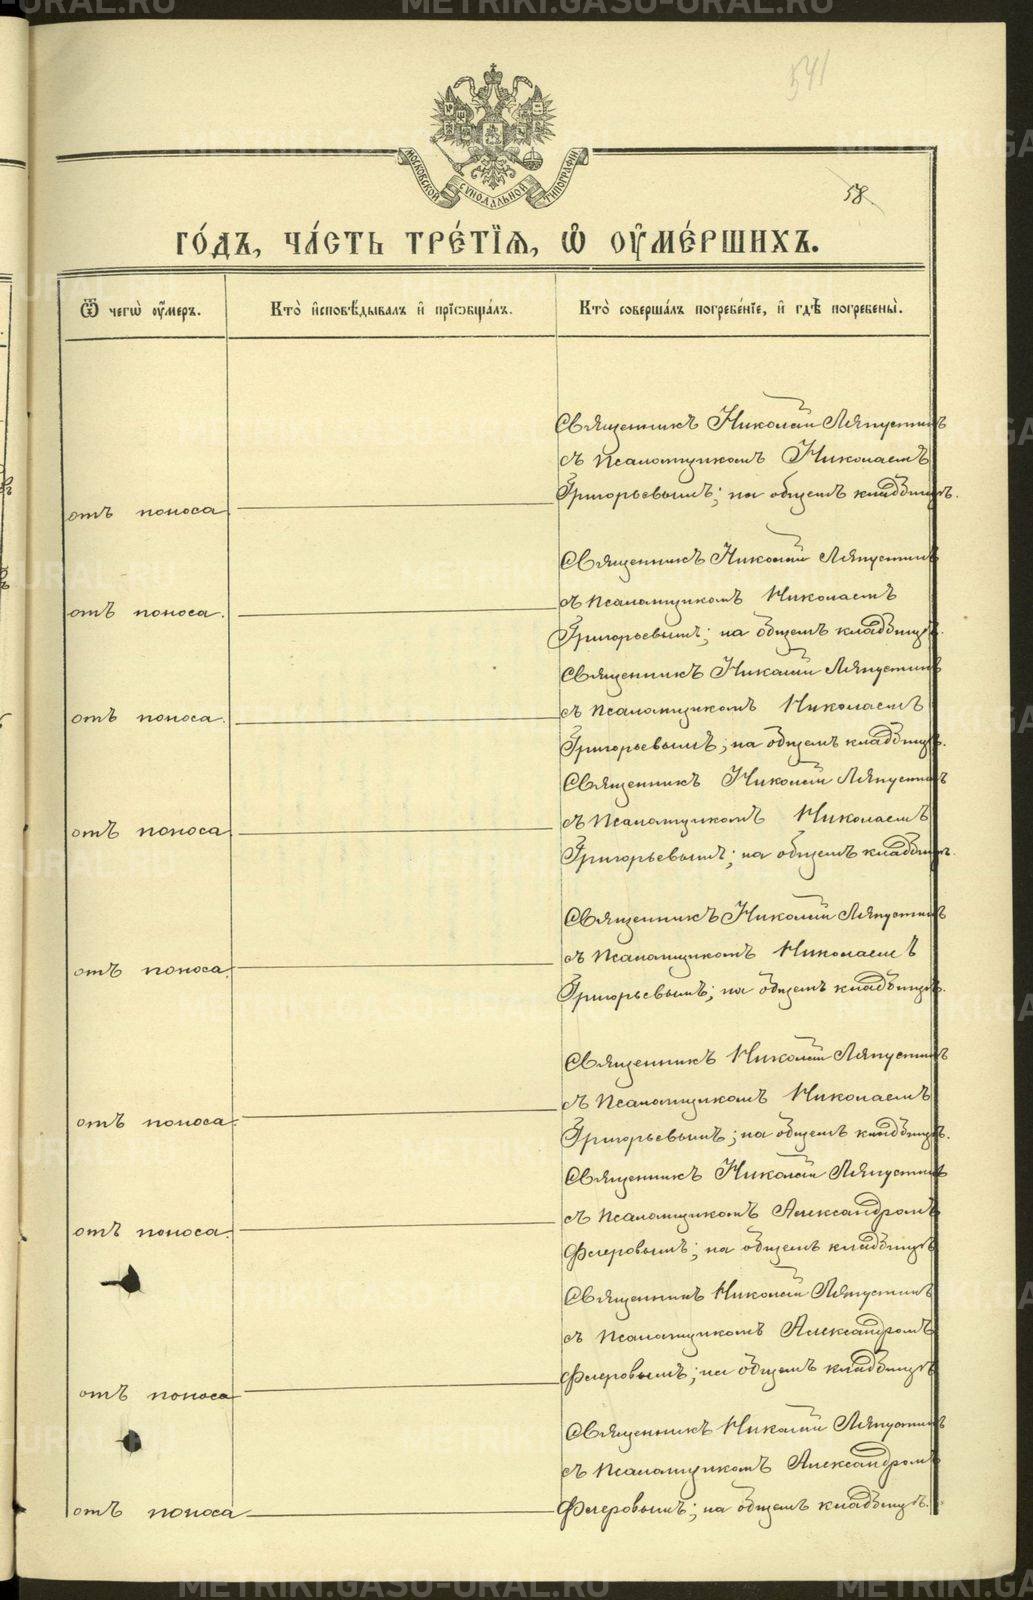 METRIKI.GASO-URAL.RU
541
МОСКОВСКОЙ СѴНОДАЛЬНОЙ ТИПОГРАФІИ
58.
ГО́ДЪ, ЧА́СТЬ ТРЕ́ТІѦ, Ѡ҆ ОУ҆МЕ́РШИХЪ.
Ѿ чегѡ̀ оу҆́меръ.
Кто̀ и҆сповѣ́дывалъ и҆ прїѡбща́лъ.
Кто̀ соверша́лъ погребе́нїе, и҆ гдѣ̀ погребены̀.
Священникъ Николай Ляпустинъ
съ Псаломщикомъ Николаемъ
Григорьевымъ; на общемъ кладбищѣ.
отъ поноса
Священникъ Николай Ляпустинъ
съ Псаломщикомъ Николаемъ
отъ поноса.
Григорьевымъ; на общемъ кладбищѣ.
Священникъ Николай Ляпустинъ
съ Псаломщикомъ Николаемъ
отъ поноса.
Григорьевымъ; на общемъ кладбищѣ.
Священникъ Николай Ляпустинъ
съ Псаломщикомъ Николаемъ
отъ поноса
Григорьевымъ; на общемъ кладбищѣ.
Священникъ Николай Ляпустинъ
съ Псаломщикомъ Николаемъ
отъ поноса.
Григорьевымъ; на общемъ кладбищѣ.
Священникъ Николай Ляпустинъ
съ Псаломщикомъ Николаемъ
отъ поноса.
Григорьевымъ; на общемъ кладбищѣ.
Священникъ Николай Ляпустинъ
съ Псаломщикомъ Александромъ
отъ поноса.
Флеровымъ; на общемъ кладбищѣ
Священникъ Николай Ляпустинъ
съ Псаломщикомъ Александромъ
отъ поноса
Флеровымъ; на общемъ кладбищѣ
Священникъ Николай Ляпустинъ
съ Псаломщикомъ Александромъ
отъ поноса
Флеровымъ; на общемъ кладбищѣ.
METRIKI.GASO-URAL.RU